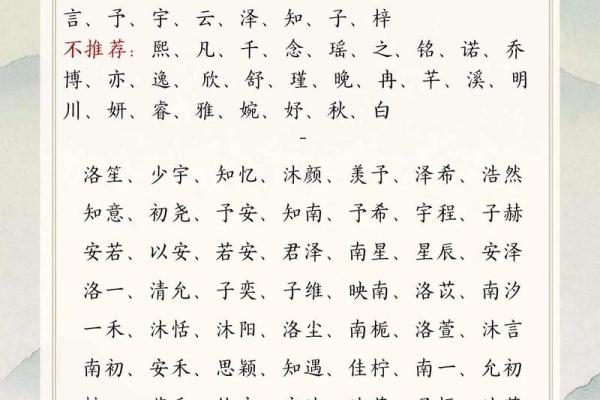 言、予、宇、云、泽、知、子、梓
不推荐：熙、凡、千、念、瑶、之、铭、诺、乔
博、亦、逸、欣、舒、瑾、晚、冉、芊、溪、明
川、妍、睿、雅、婉、妤、秋、白
-
洛笙、少宇、知忆、沐颜、羡予、泽希、浩然
知意、初尧、予安、知南、予希、宇程、子赫
安若、以安、若安、君泽、南星、星辰、安泽
洛一、清允、子奕、子维、映南、洛苡、南汐
一禾、沐恬、沐阳、洛尘、南栀、洛萱、沐言
南初、安禾、思颖、知遇、佳柠、南一、允初